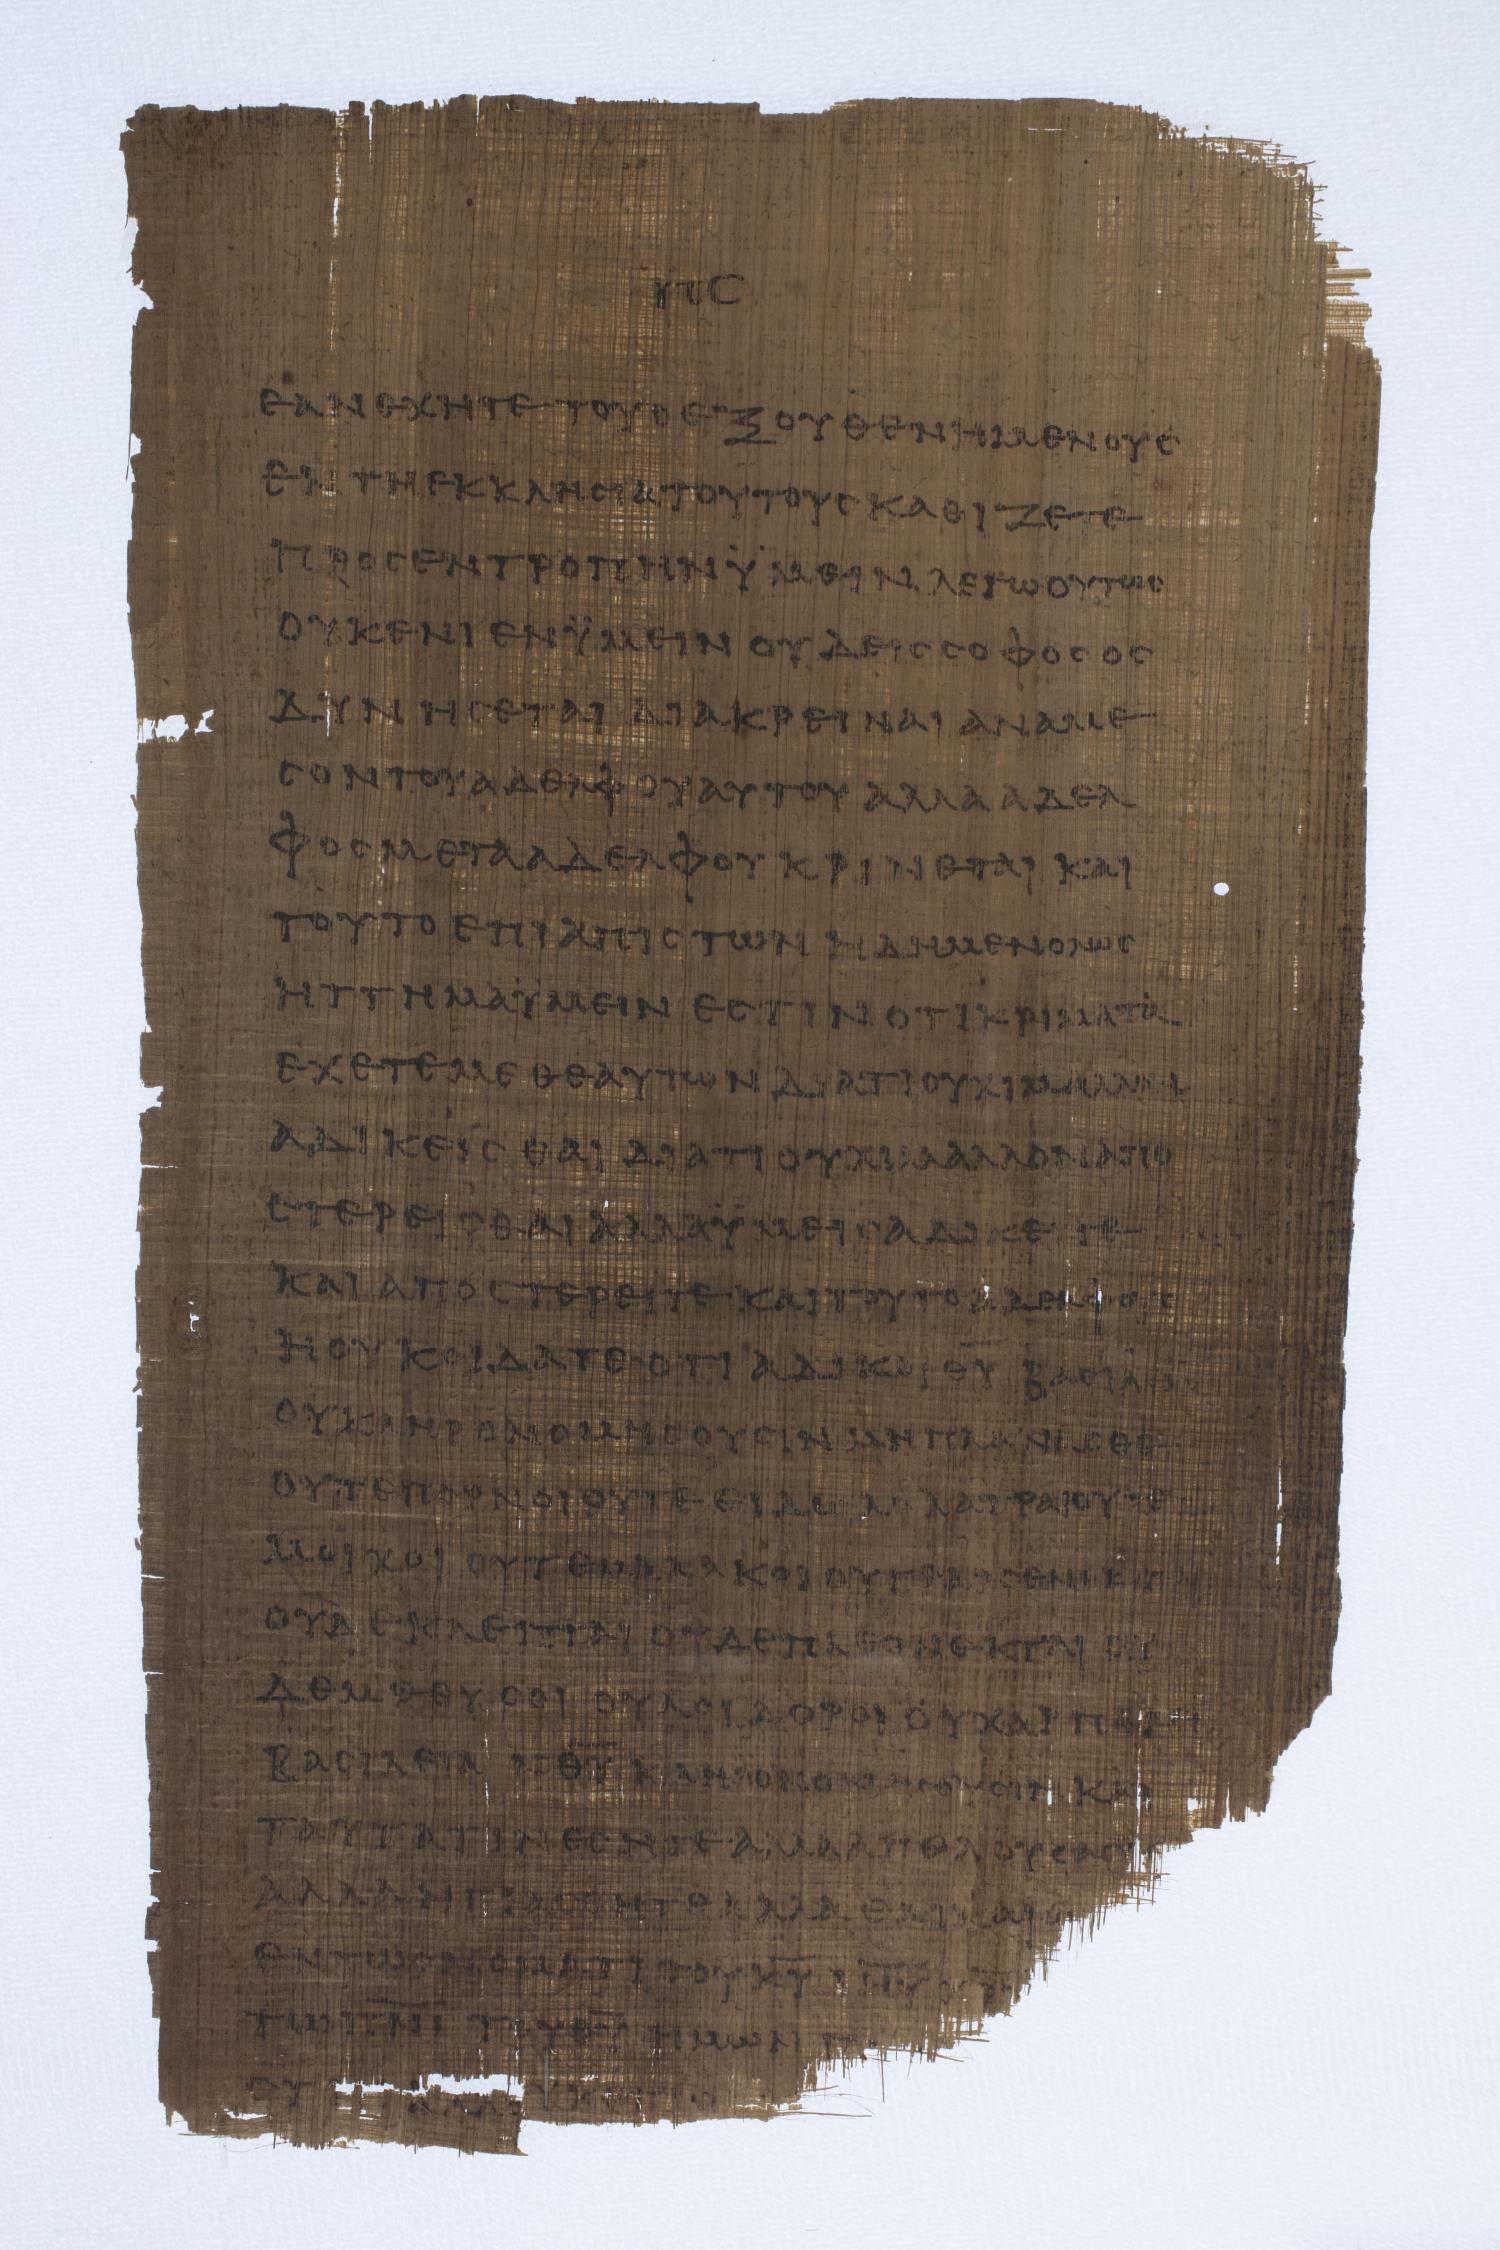 ϥε
εανεχητετουσεξουθενημενους
εντηεκκλησιατουτουςκαθιζετε
προσεντροπηνϋμεινλεγωουτως
ουκενιενϋμεινουδεισσοφοσος
δυνησεταιδιακρειναιαναμε
σοντουαδελφουαυτουαλλααδελ
φοσμετααδελφουκρινεταικαι
τουτοεπιαπιστωνηδημενολως
ηττημαϋμεινεστινοτικριματα
εχετεμεθεαυτωνδιατιουχιμαλλον
αδικεισθαιδιατιουχιμαλλοναπο
στερεισθαιαλλαϋμεισαδικειτε
καιαποστερειτεκαιτουτοαδελφους
ηουκοιδατεοτιαδικοιθ̅υ̅βασιλειαν
ουκληρονομησουσινμηπλανασθε
ουτεπορνοιουτεειδωλολατραιουτε
μοιχοιουτεμαλακοιουτεαρσενοκοιτ
ουδεκλεπταιουδεπλεονεκταιου
δεμεθυσοιουλοιδοροιουχαρπαγ
βασιλειανθ̅υ̅κληρονομησουσινκαι
ταυτατινεσητεαλλααπελουσασ
αλλαηγιασθητεαλλαεδικαι
εντωονοματιτουκ̅υ̅ιηυχ̅
τωπ̅ν̅ι̅τουθ̅υ̅ημων